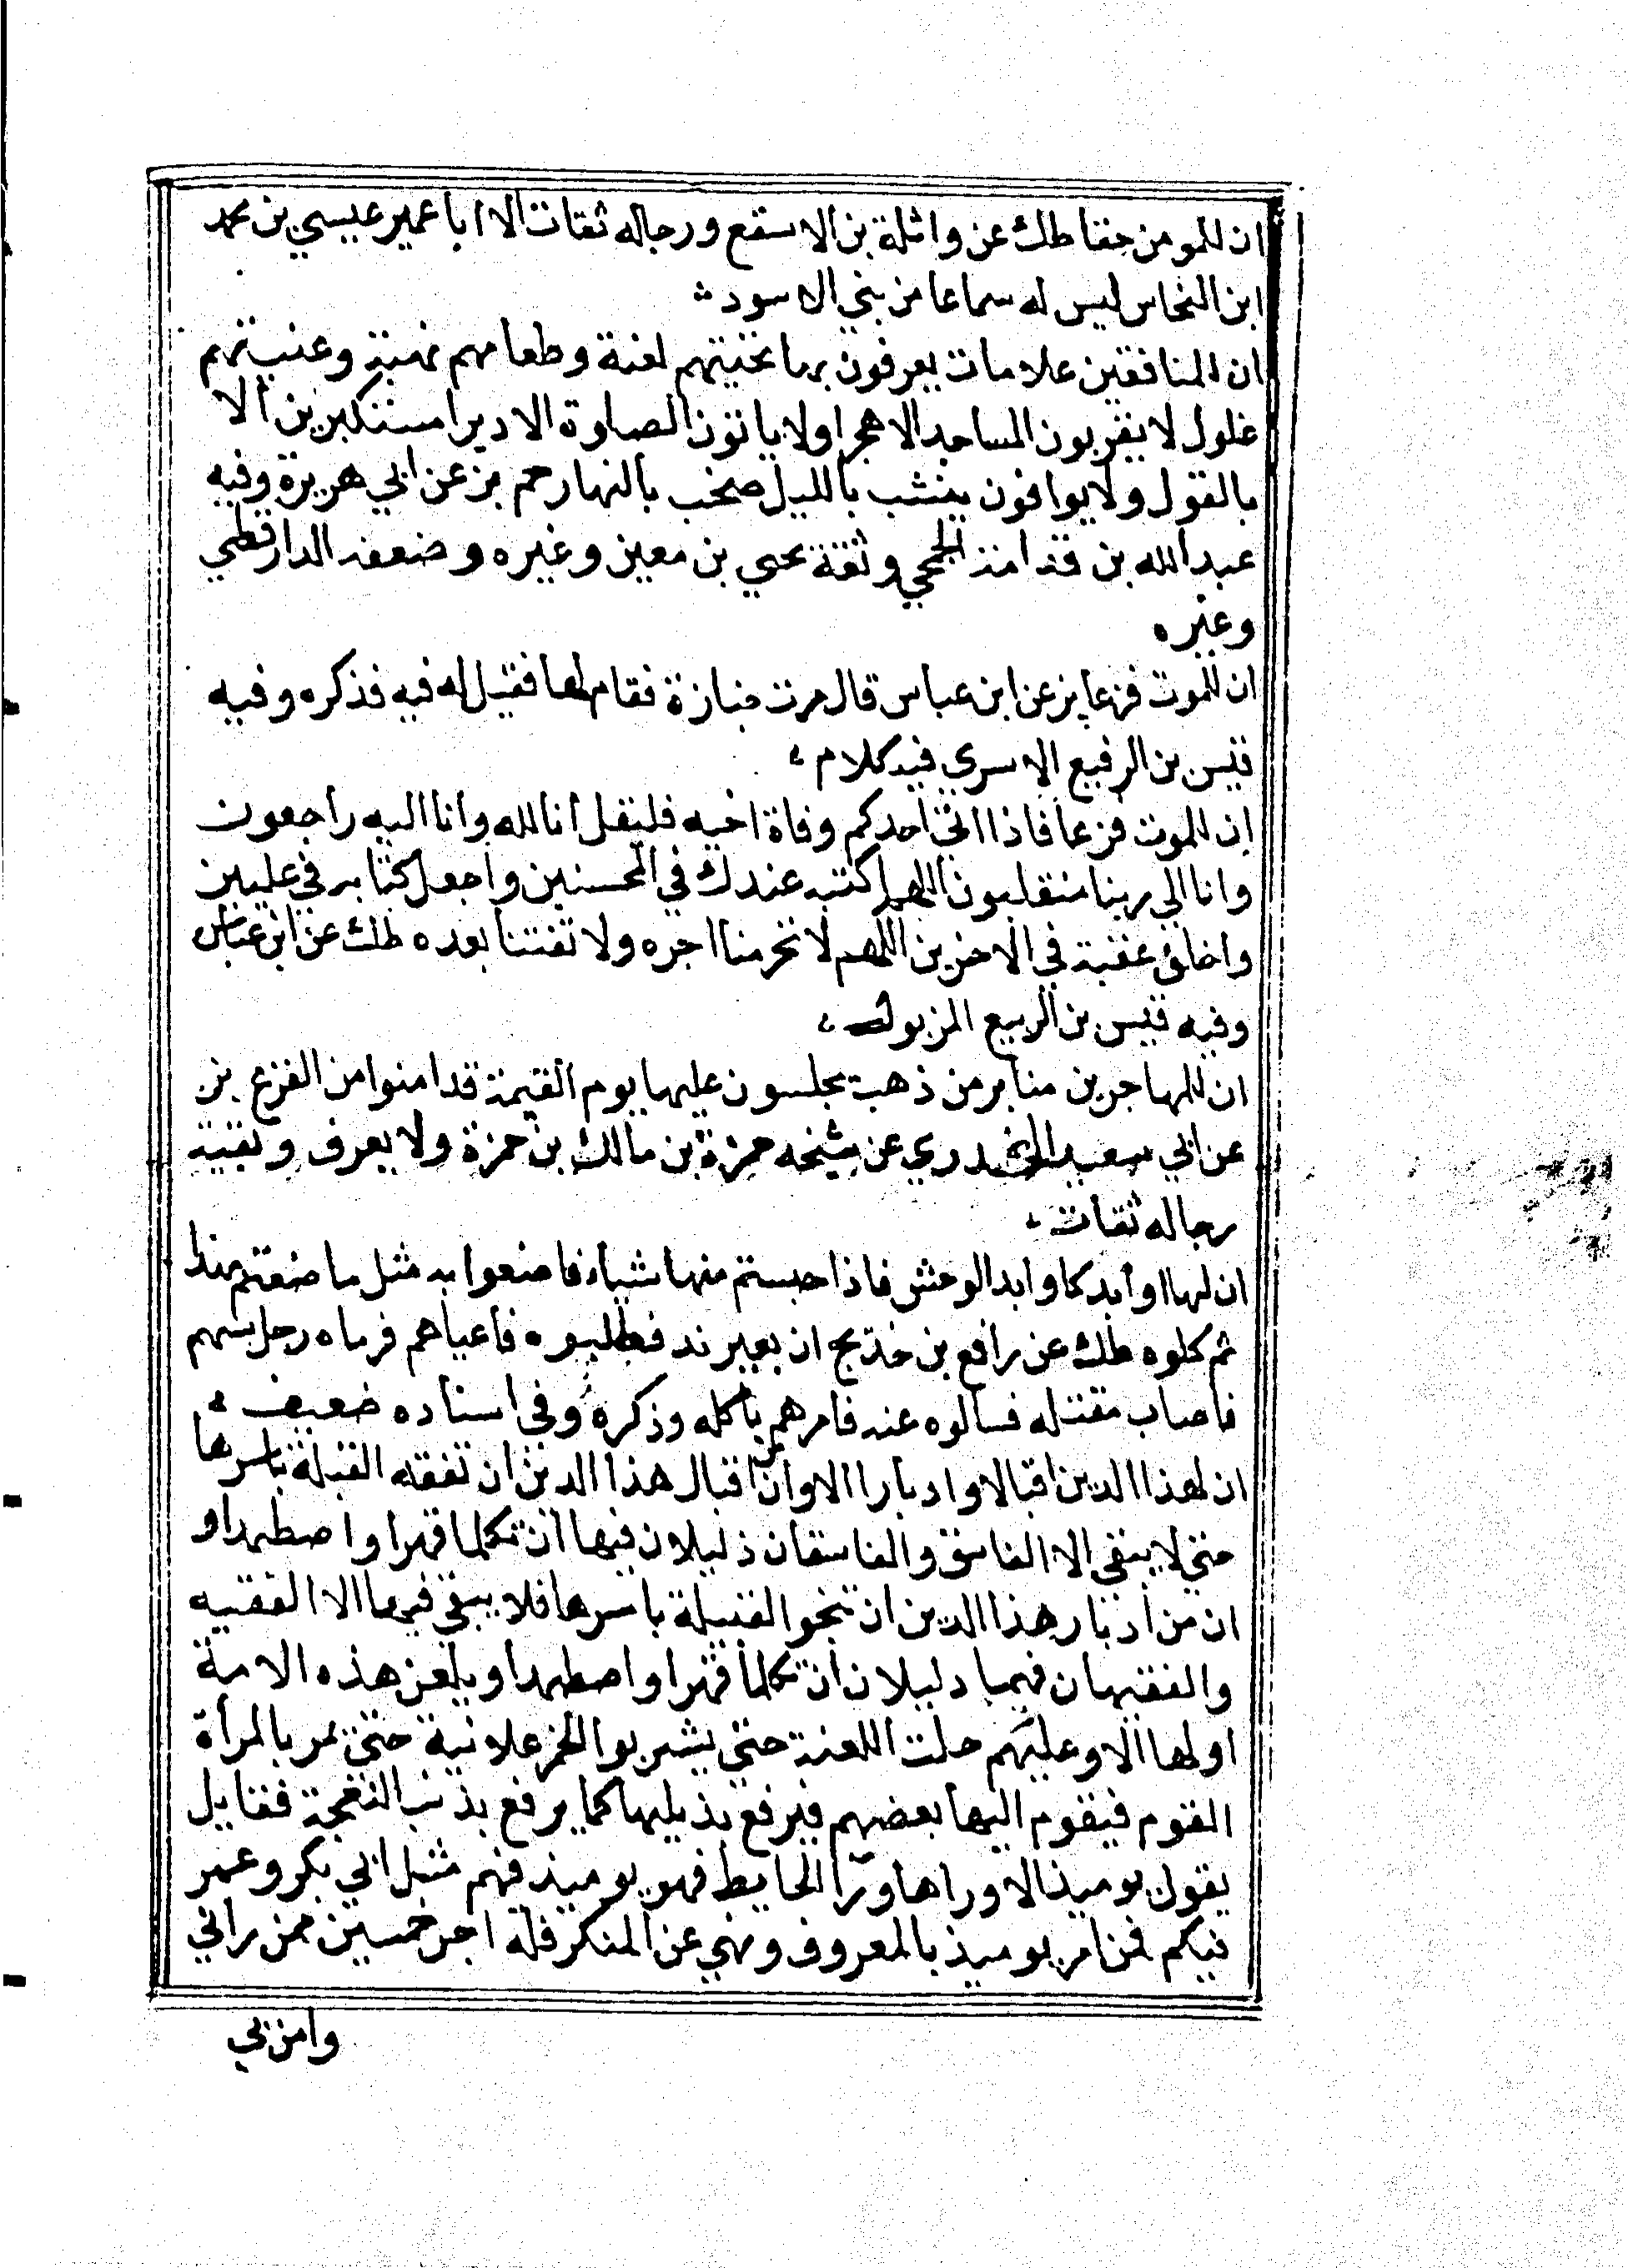 ان للمومن حقا طك عن واثلة بن الاسقع ورجاله ثقات الا ابا عمير عيسي بن محمد
ابن النحاس ليس له سماعا من بني الاسود
ان للمنافقين علامات يعرفون بها تحيتهم لعنة وطعامهم نهبة وغنيمتهم
غلول لا يقربون المساجد الا هجرا ولا ياتون الصلوة الا دبرا مستكبرين الا
بالقول ولا يوافون بالليل صخب بالنهار حم بز عن ابي هريرة وفيه
عبد الله بن قدامة الجمحي وثقة يحيي بن معين وغيره وضعفه الدارقطني
وغيره
ان للموت فزعا بز عن ابن عباس قال مرت جنازة فقام لها فقيل له فيه فذكره وفيه
قيس بن الرفيع الاسري فيه كلام
ان للموت فزعا فاذا اتي احدكم وفاة اخيه فليقل انا لله وانا اليه راجعون
وانا الي ربنا منقلبون اللهم اكتبه عندك في المحسنين واجعل كتابه في عليين
واخلف عقبة في الاخرين اللهم لا تحرمنا اجره ولا تفتنا بعده طك عن ابن عباس
وفيه قيس بن الربيع المزبور
ان للمهاجرين منابر من ذهب يجلسون عليها يوم القيمة قد امنوا من الفزع بز
عن ابي سعيد الخدري عن شيخه حمزة بن مالك بن حمزة ولا يعرف وبقية
رجاله ثقات
ان لها اوابد كاوابد الوحش فاذا حبستم منها شياء فاصنعوا به مثل ما صنعتم
ثم كلوه طك عن رافع بن خديج ان بعير ند فطلبوه فاعياهم فرماه رجل بسهم
فاصاب مقتله فسالوه عنه فامرهم باكله وذكره وفي اسناده ضعيف
ان لهذا الدين اقبالا وادبارا الا وان من اقبال هذا الدين ان تفقه القبلة باسرها
حتي لا يبقي الا الفاسق والفاسقان ذليلان فيها ان تكلما قهرا واضطهدا و
ان من ادبار هذا الدين ان تجفو القبيلة باسرها فلا يبقي فيها الا الفقيه
والفقيهان فهما دليلان ان تكلما قهرا واضطهدا ويلعن هذه الامة
اولها الا وعليهم حلت اللعنة حتي يشربوا الخمر علانية حتي تمر بالمرأة
القوم فيقوم اليها بعضهم فيرفع بذيلها كما يرفع بذنب النعجة فقايل
يقول يوميذ الا وراها ورا الحايط فهو يوميذ فيهم مثل ابي بكر وعمر
فيكم فمن امر يوميذ بالمعروف ونهي عن المنكر فله اجر خمسين ممن راني
وامن بي